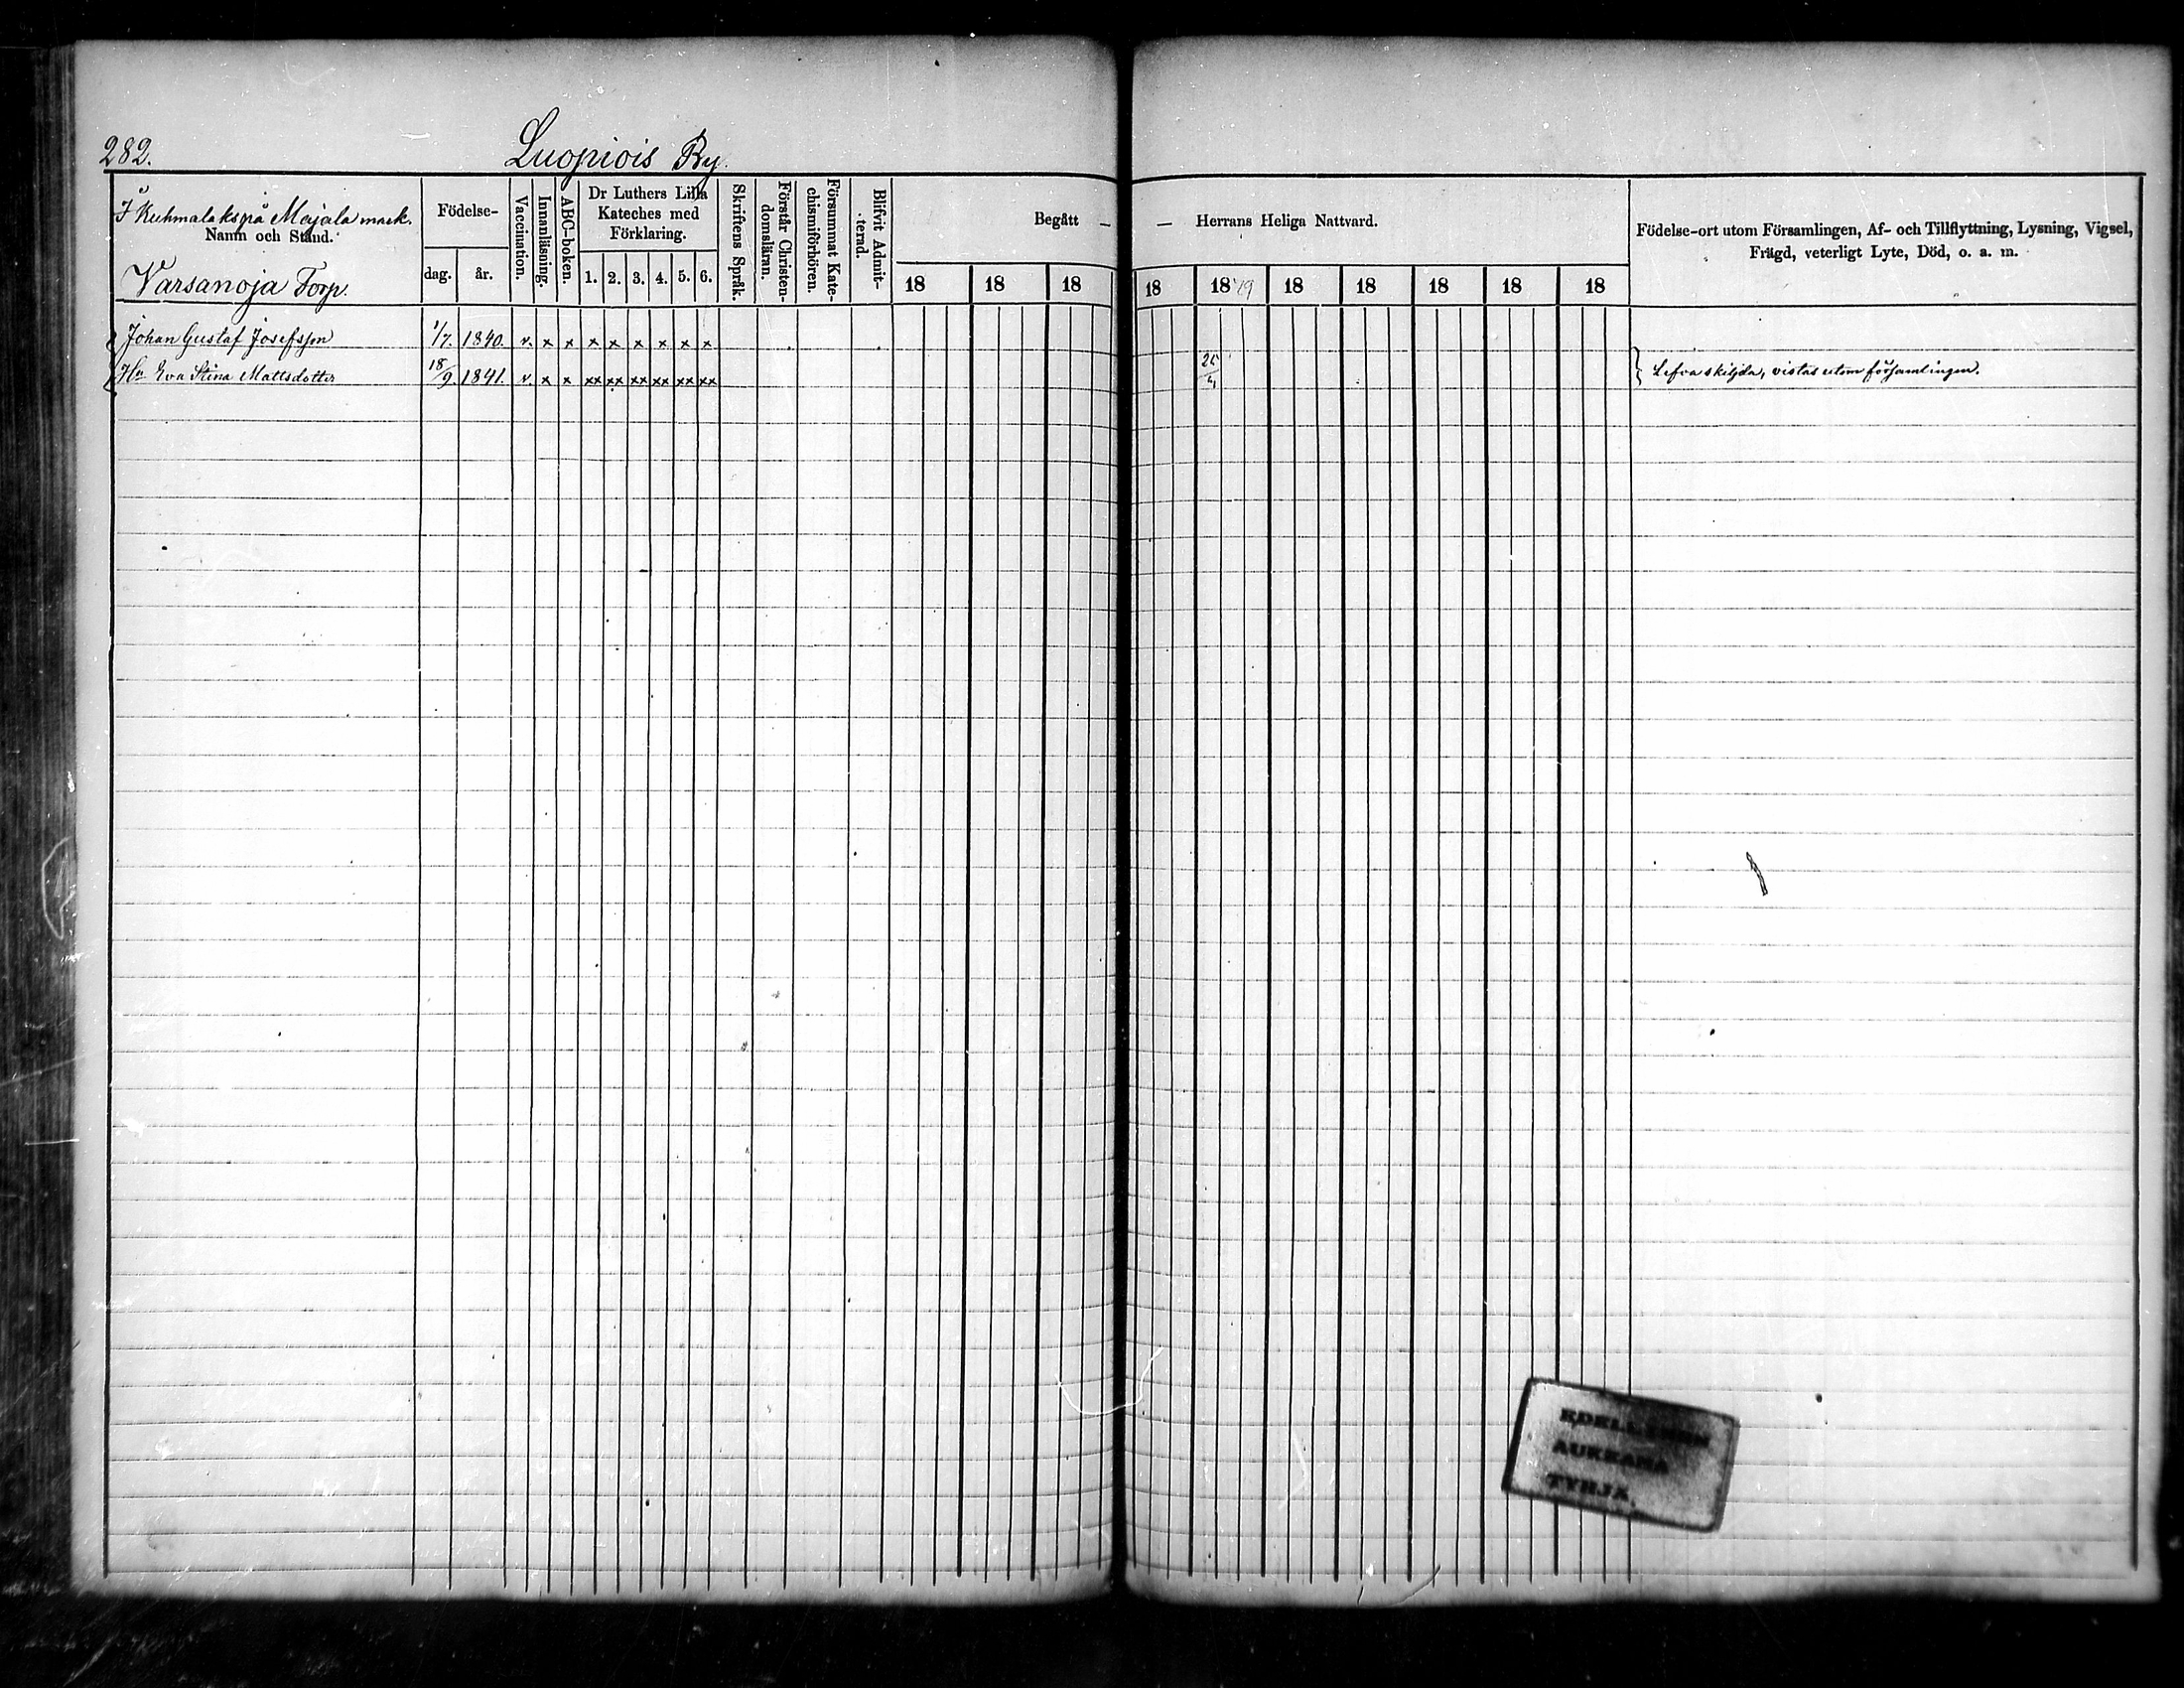 282.
Luopiois By.
I Kuhmalaks på Majala mark.
Namn och Stånd.
Varsanoja Torp.
Födelse-
dag.
år.
Vaccination.
Innanläsning.
ABC-boken.
Dr Luthers Lilla
Kateches med
Förklaring.
1. 2. 3. 4. 5. 6.
Skriftens Språk.
Förstår Christen-
domsläran.
Försummat Kate-
chismiförhören.
Blifvit Admit-
terad.
Begått — — Herrans Heliga Nattvard.
18 18 18 18 18 79 18 18 18 18 18
Födelse-ort utom Församlingen, Af- och Tillflyttning, Lysning, Vigsel,
Frägd, veterligt Lyte, Död, o. a. m.
Johan Gustaf Josefsson 1/7. 1840. v. x x x x x x x x
Hu Eva Stina Mattsdotter 18/9. 1841. v. x x xx xx xx xx xx xx
Lefva skiljda, vistas utom församlingen.
EDELLINEN
AUKEAMA
TYHJÄ